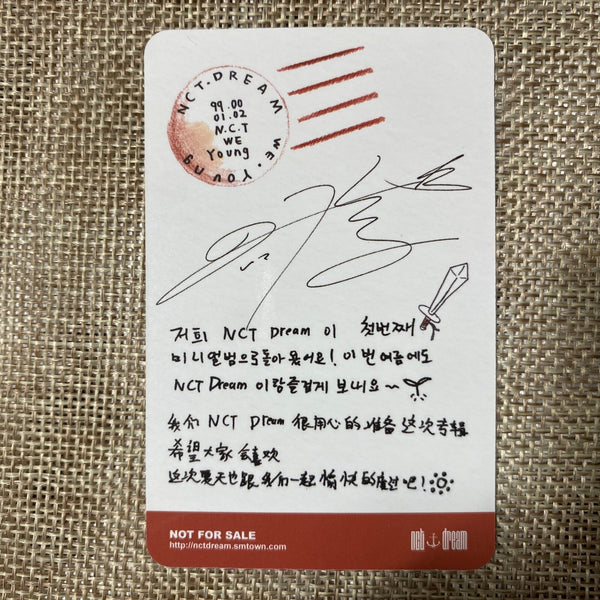 NCT.DREAM WE.Young
99.00
01.02
N.C.T
WE
Young
저희 NCT Dream 이 첫번째
미니앨범으로 돌아왔어요! 이번 여름에도
NCT Dream 이랑 즐겁게 보내요~
我们 NCT Dream 很用心的准备这次专辑
希望大家会喜欢
这次夏天也跟我们一起愉快的度过吧!
NOT FOR SALE
http://nctdream.smtown.com
nct dream